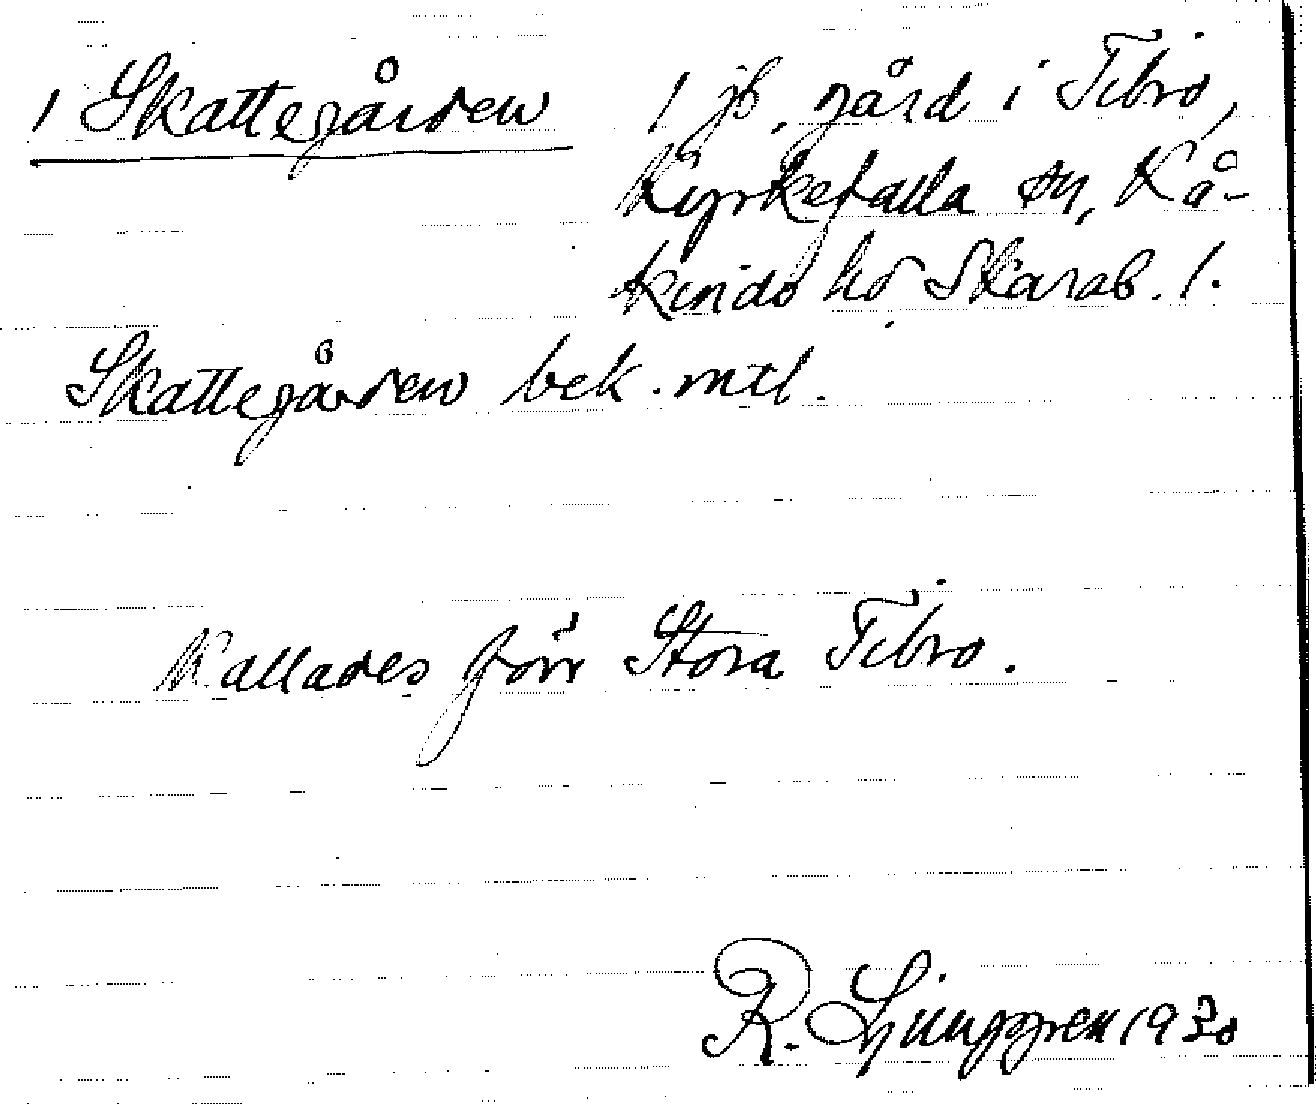 1 Skattegården
1 jb. gård i Tibro,
Kyrkefalla sn, Kå-
kinds hd Skarab. l.
Skattegården bek. mtl.
Kallades förr Stora Tibro.
R. Ljunggren 1930